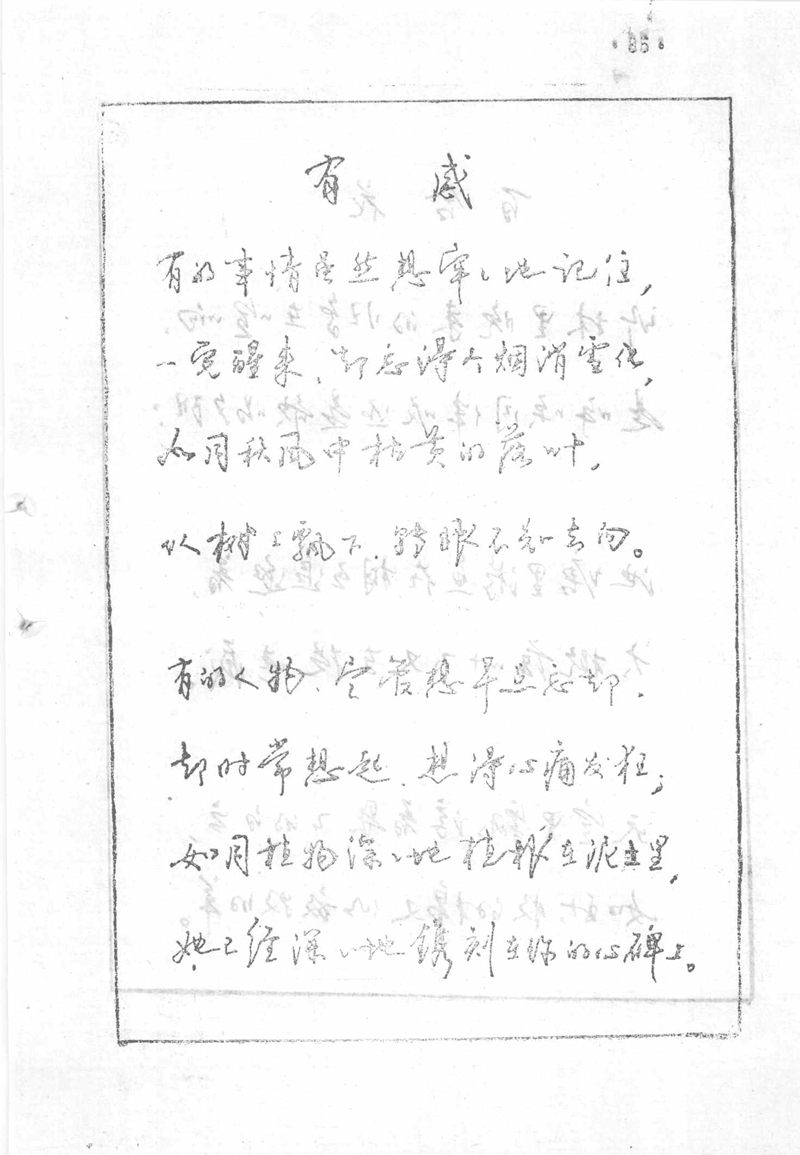 ·86·
有 感
有的事情虽然想牢々地记住，
一觉醒来，却忘得个烟消雪化，
如同秋风中枯黄的落叶，
从树上飘下，转眼不知去向。
有的人物，尽管想早点忘却，
却时常想起，想得心痛发狂；
如同植物深々地植根在泥土里，
她已经深々地镌刻在你的心碑上。